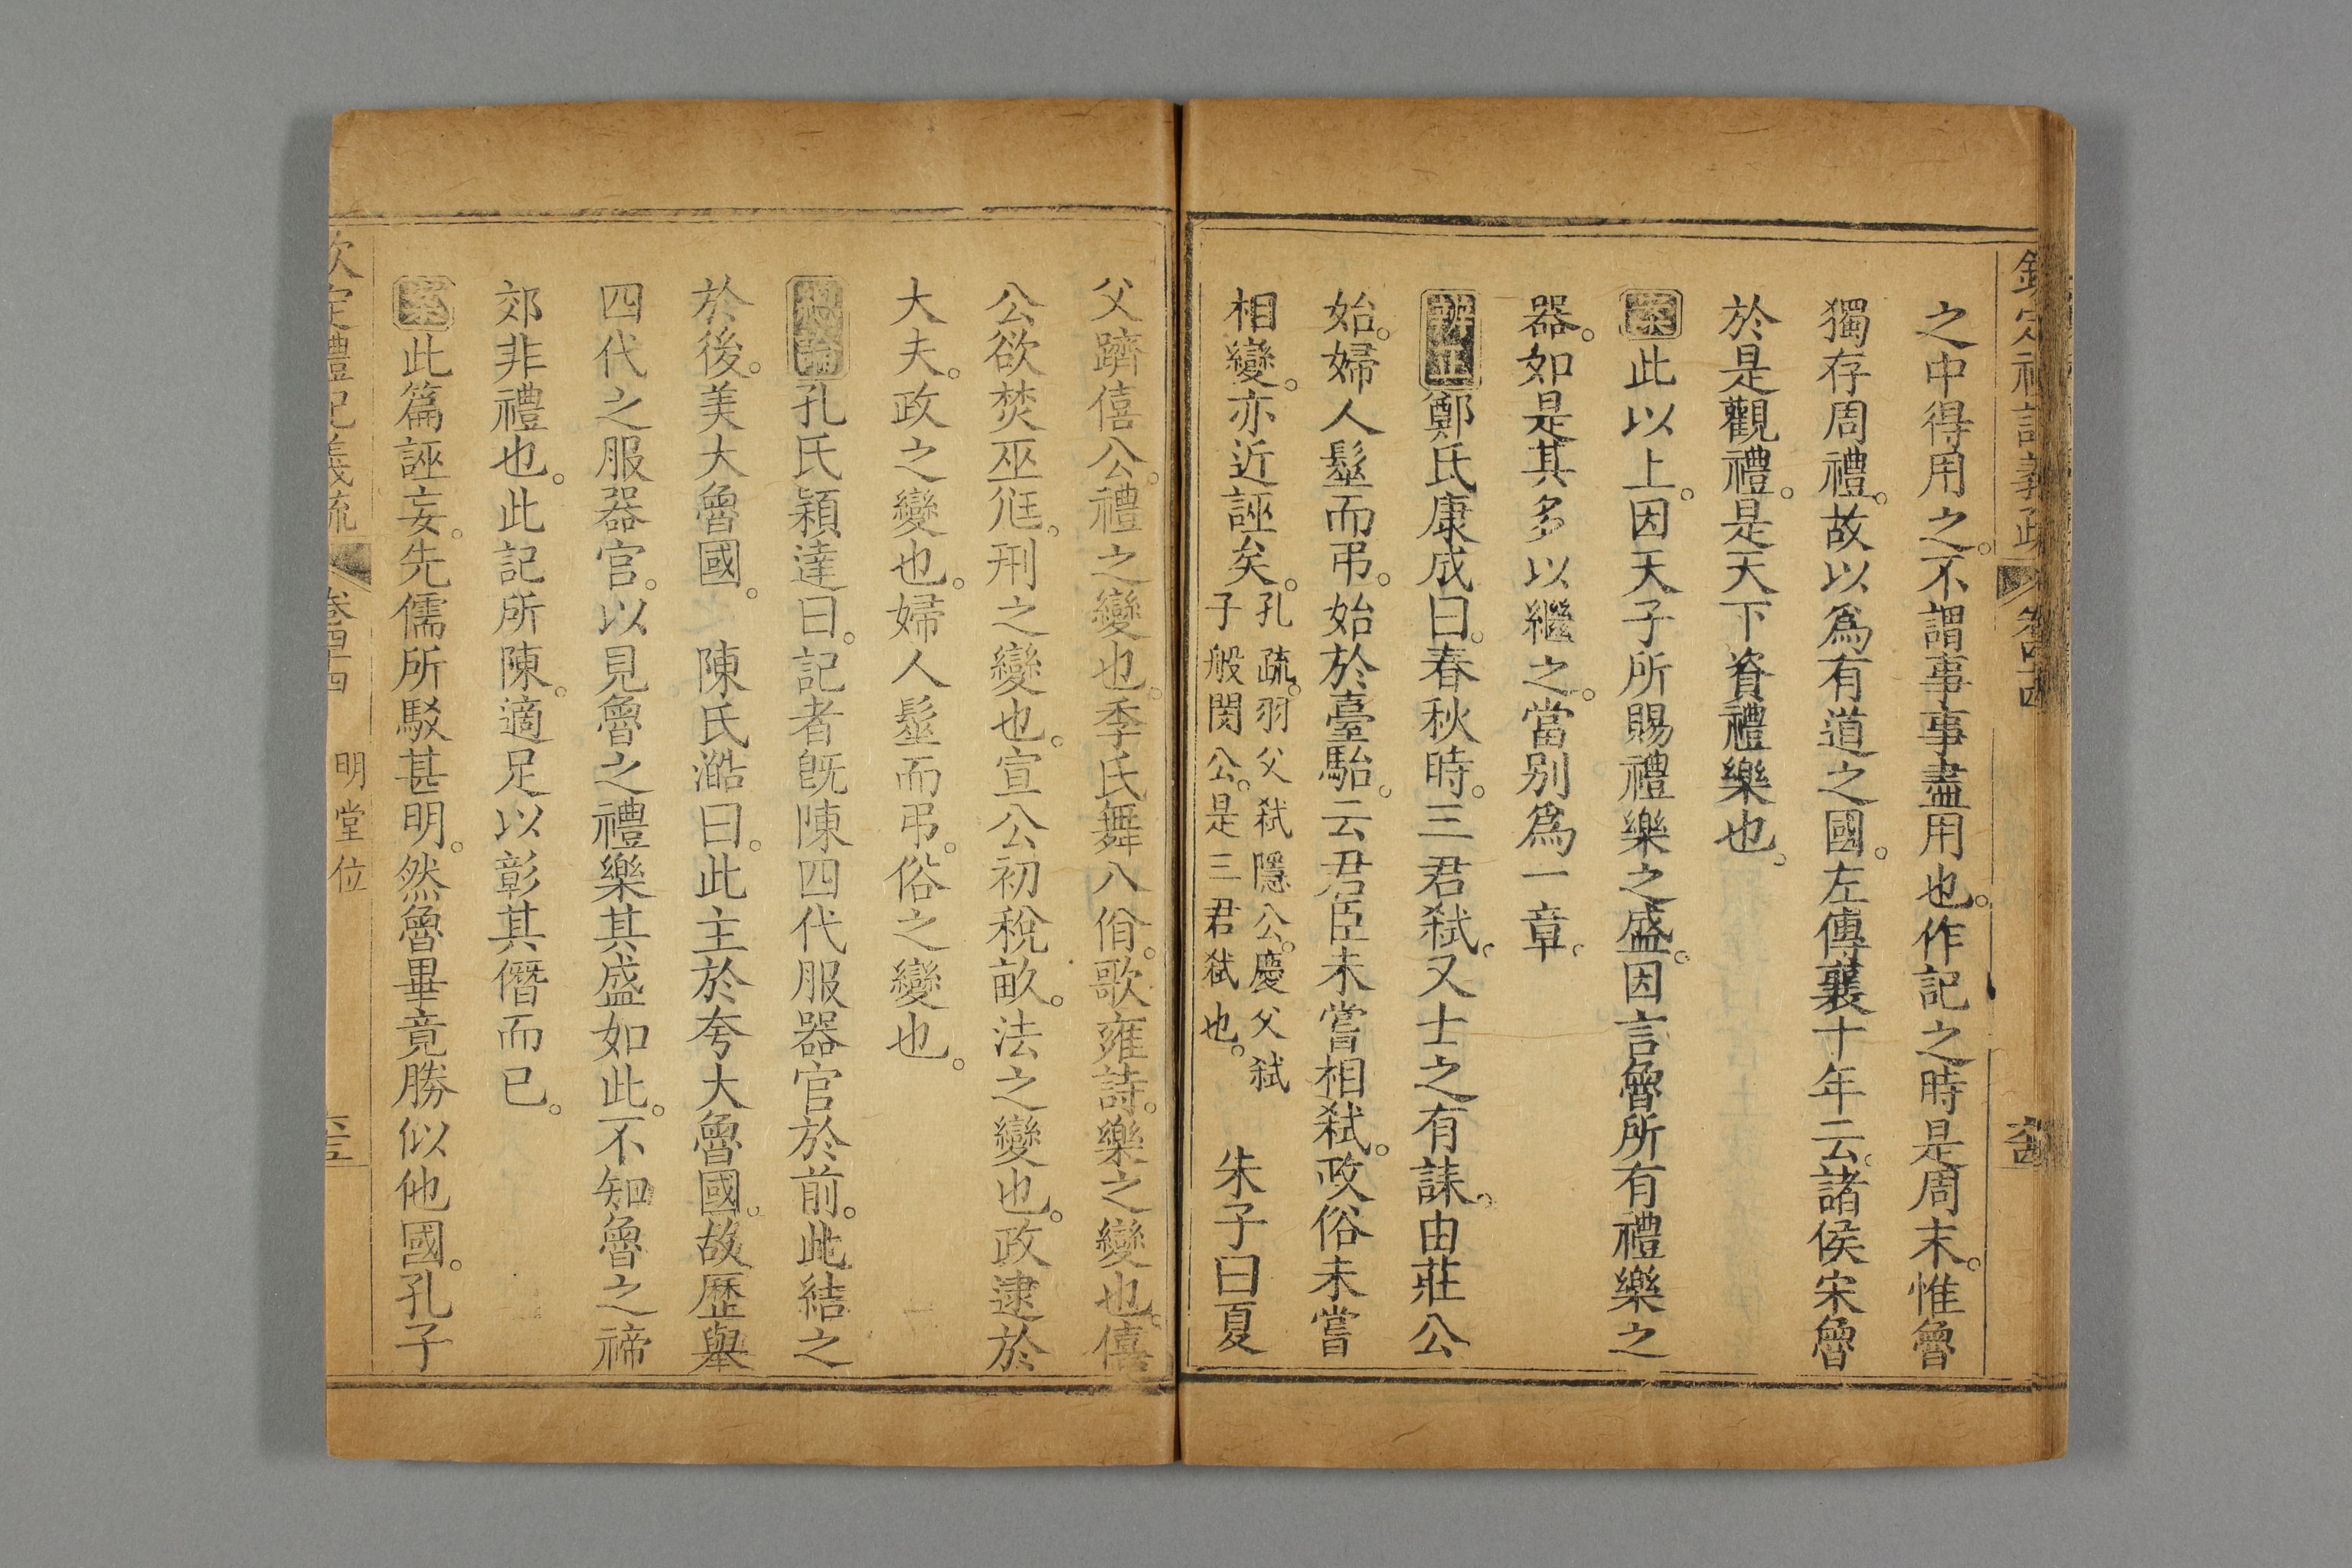 欽定禮記義疏 卷四十四
之中得用之。不謂事事盡用也。作記之時是周末。惟魯
獨存周禮。故以爲有道之國。左傳襄十年云。諸侯宋魯
於是觀禮。是天下資禮樂也。
案此以上。因天子所賜禮樂之盛。因言魯所有禮樂之
器。如是其多以繼之。當别爲一章。
辨正鄭氏康成曰。春秋時。三君弑。又士之有誄。由莊公
始。婦人髽而弔。始於臺駘。云君臣未嘗相弑。政俗未嘗
相變。亦近誣矣。孔疏。羽父弑隱公。慶父弑子般閔公。是三君弑也。 朱子曰夏
父躋僖公。禮之變也。季氏舞八佾。歌雍詩。樂之變也。僖
公欲焚巫尫。刑之變也。宣公初稅畝。法之變也。政逮於
大夫。政之變也。婦人髽而弔。俗之變也。
總論孔氏穎達曰。記者旣陳四代服器官於前。此結之
於後。美大魯國。 陳氏澔曰。此主於夸大魯國。故歷舉
四代之服器官。以見魯之禮樂其盛如此。不知魯之禘
郊非禮也。此記所陳。適足以彰其僭而已。
案此篇誣妄。先儒所駁甚明。然魯畢竟勝似他國。孔子
欽定禮記義疏 卷四十四 明堂位